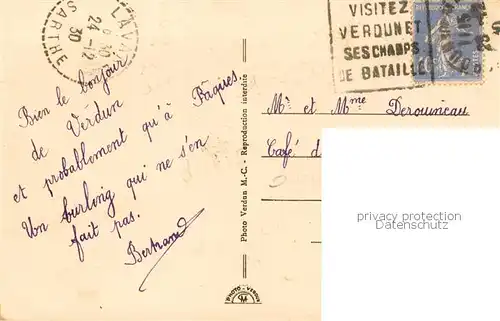 LAVA
SARTHE
24-12
30
VISITEZ
VERDUN ET
SES CHAMPS
DE BATAILLE
Bien le bonjour
de Verdun
et probablement qu'à Pâques.
Un burling qui ne s'en
fait pas.
Bertrand
Photo Verdun M.-C. - Reproduction interdite
PHOTO-VERDUN
Mr et Mme Derouineau
Café d
privacy protection
Datenschutz